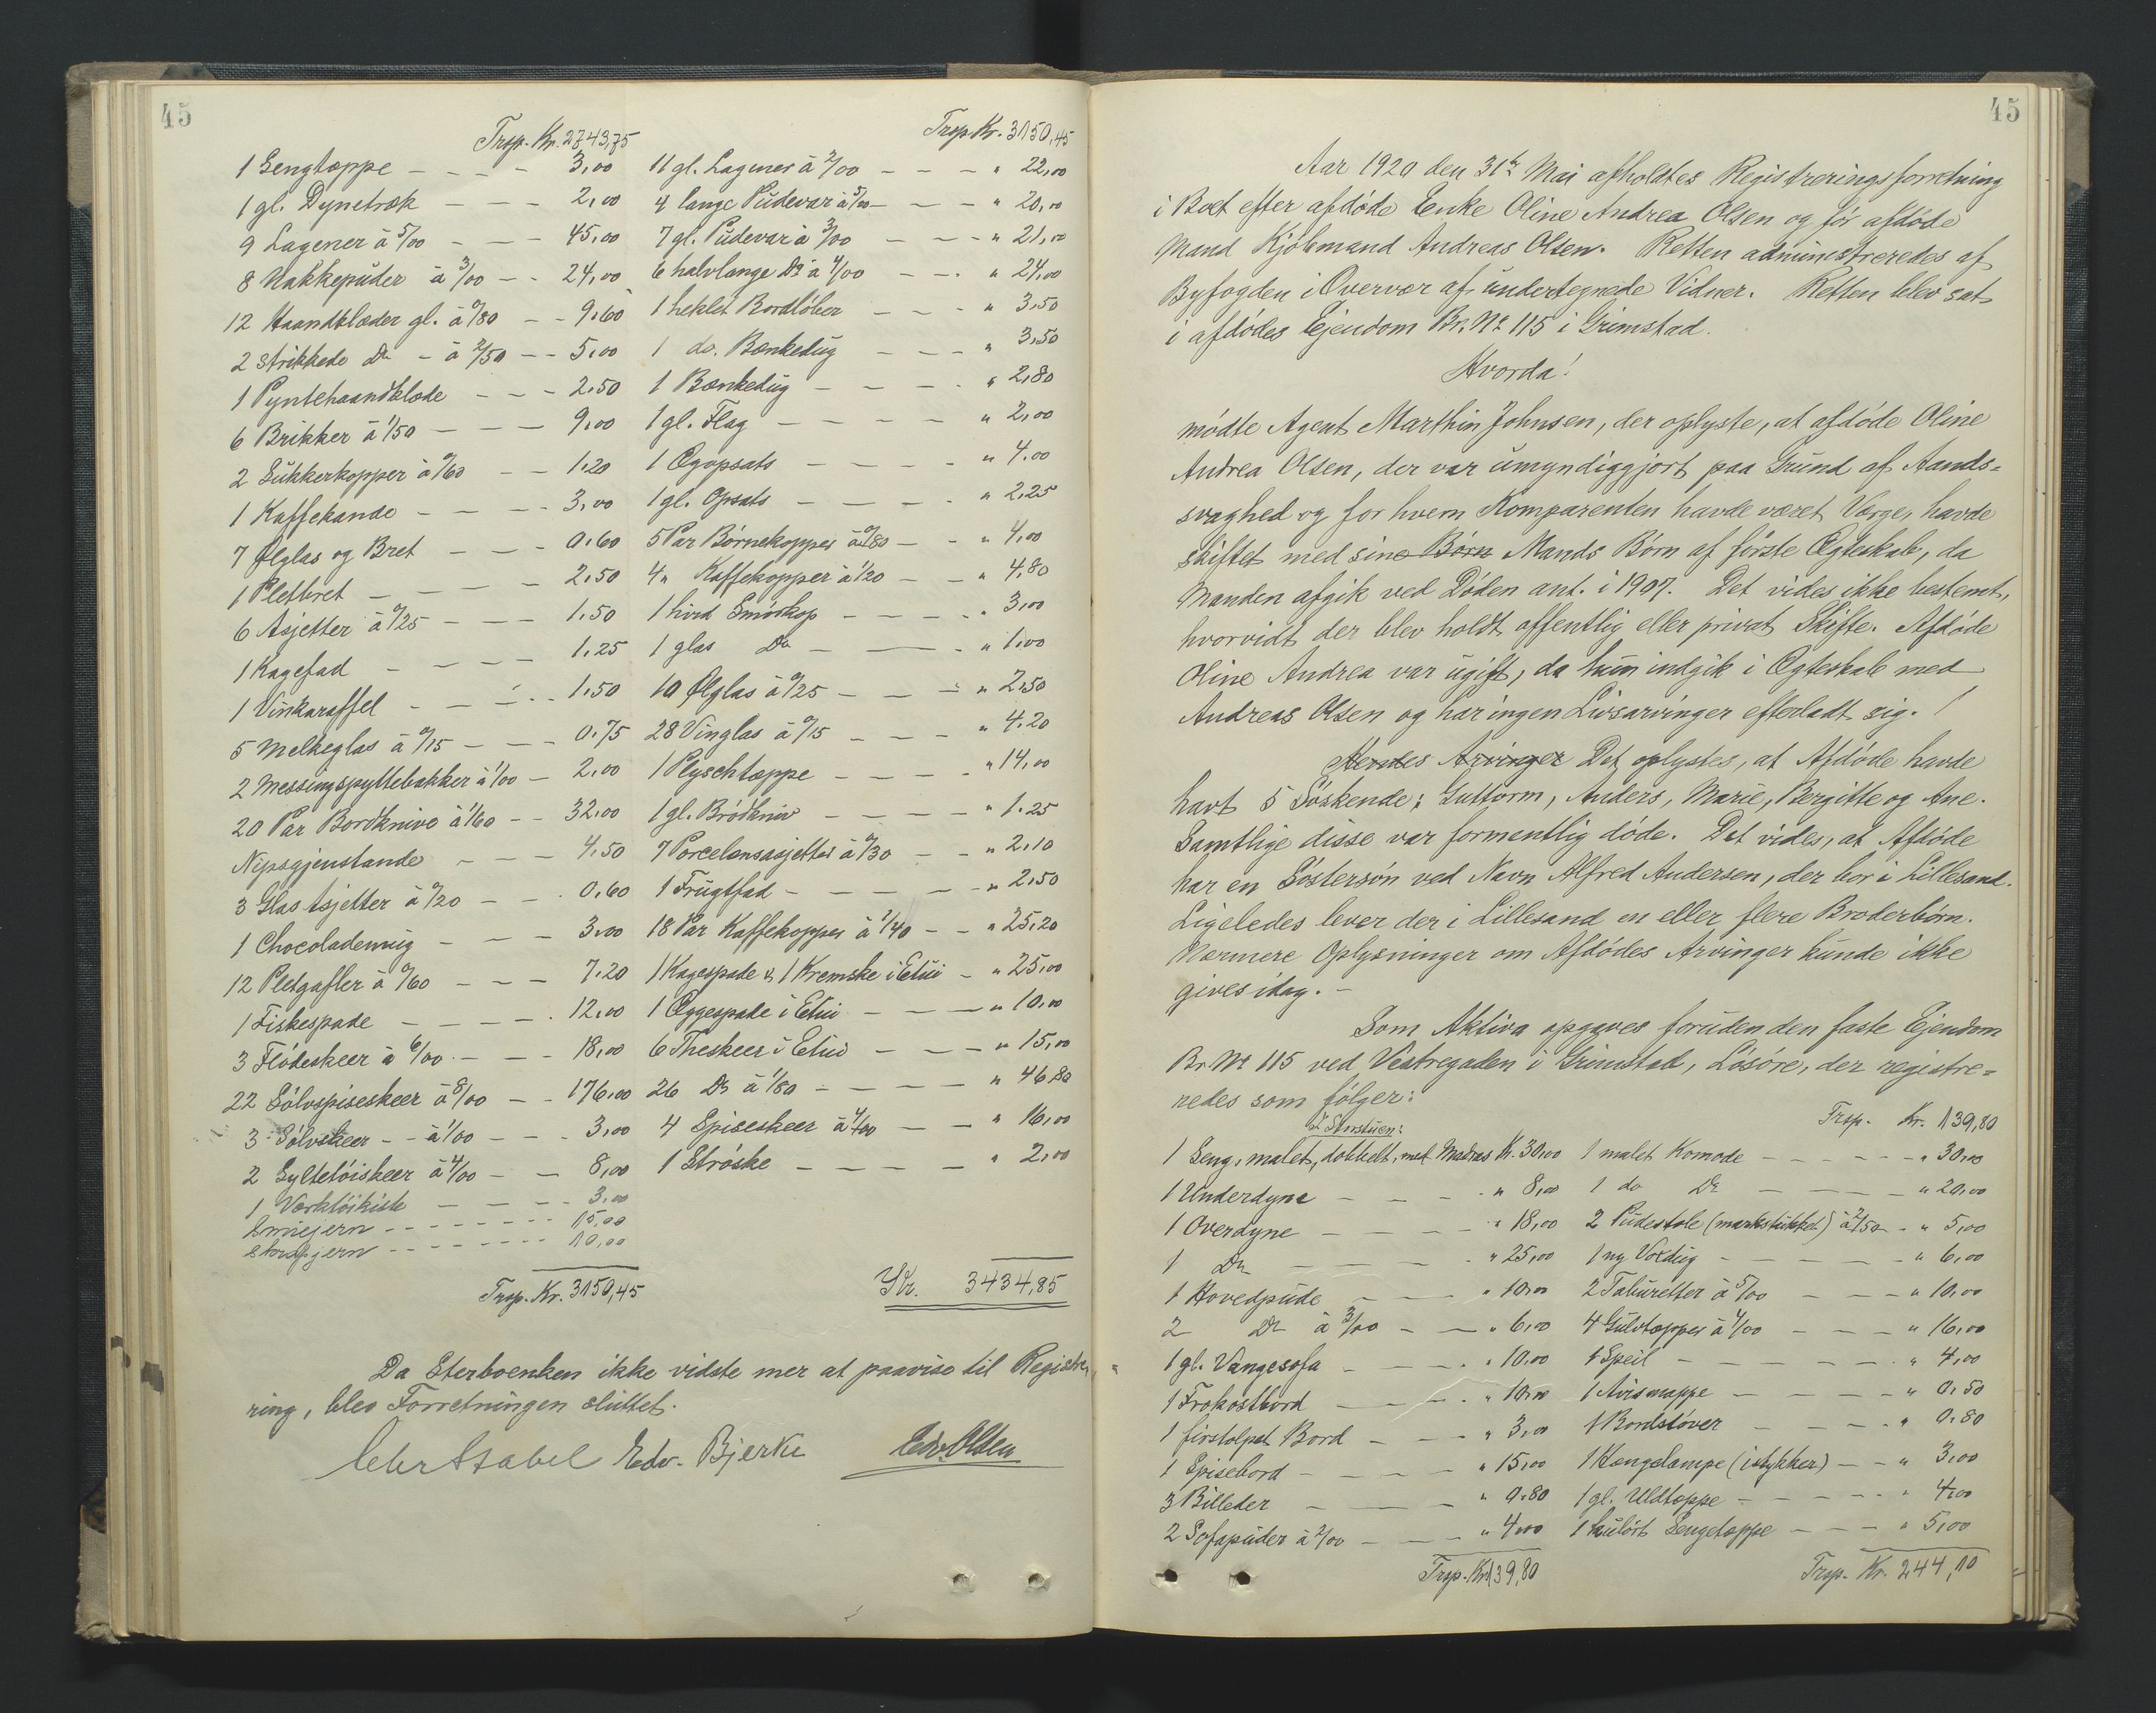 45
Trsp. Kr. 2743,75
1 Sengtæppe - - - - 3,00
1 gl. Dynetræk - - - 2,00
9 Lagener à 5/00 - - - 45,00
8 Nakkepuder à 3/00 - - 24,00
12 Haandklæder gl. à 0/80 - - 9,60
2 strikkede Do - à 2/50 - - 5,00
1 Pyntehaandklæde - - - 2,50
6 Brikker à 1/50 - - - 9,00
2 Sukkerkopper à 0/60 - - 1,20
1 Kaffekande - - - - 3,00
7 Ølglas og Bret - - - 0,60
1 Pletbret - - - - 2,50
6 Asjetter à 0/25 - - - 1,50
1 Kagefad - - - - 1,25
1 Vinkaraffel - - - - 1,50
5 Melkeglas à 0/15 - - - 0,75
2 Messingspyttebakker à 1/00 - 2,00
20 Par Bordknive à 1/60 - - 32,00
Nipsgjenstande - - - 4,50
3 Glas Asjetter à 0/20 - - 0,60
1 Chocolademug - - - 3,00
12 Pletgafler à 0/60 - - - 7,20
1 Fiskespade - - - - 12,00
3 Flødeskeer à 6/00 - - - 18,00
22 Sølvspiseskeer à 8/00 - - 176,00
3 Sølvskeer - - à 1/00 - - - 3,00
2 Syltetøiskeer à 4/00 - - 8,00
1 Værktøikiste - - - - 3,00
Smiejern - - - - - - - 15,00
Skrapjern - - - - - - - 10,00
Trsp. Kr. 3150,45
Trsp. Kr. 3150,45
11 gl. Lagener à 2/00 - - - " 22,00
4 lange Pudevar à 5/00 - - - " 20,00
7 gl. Pudevar à 3/00 - - - " 21,00
6 halvlange Do à 4/00 - - - " 24,00
1 heklet Bordløber - - - " 3,50
1 do. Bænkedug - - - " 3,50
1 Bænkedug - - - - " 2,80
1 gl. Flag - - - - " 2,00
1 Ægopsats - - - - " 4,00
1 gl. Opsats - - - - " 2,25
5 Par Børnekopper à 0/80 - - " 4,00
4 " Kaffekopper à 1/20 - - " 4,80
1 hvid Smørkop - - - - " 3,00
1 glas Do - - - " 1,00
10 Ølglas à 0/25 - - - " 2,50
28 Vinglas à 0/15 - - - " 4,20
1 Plyschtæppe - - - - " 14,00
1 gl. Brødkniv - - - - " 1,25
7 Porcelænsasjetter à 0/30 - - " 2,10
1 Frugtfad - - - - - " 2,50
18 Par Kaffekopper à 1/40 - - " 25,20
1 Kagespade & 1 Kremske i Etui - " 25,00
1 Æggespade i Etui - - - " 10,00
6 Theskeer i Etui - - - " 15,00
26 Do à 1/80 - - - - " 46,80
4 Spiseskeer à 4/00 - - " 16,00
1 Strøske - - - - - " 2,00
Kr. 3434,85
Da Sterboenken ikke vidste mer at paavise til Registre-
ring, blev Forretningen sluttet.
Edv. Bjerke
Edv Olsen
45
Aar 1920 den 31te Mai afholdtes Registreringsforretning
i Boet efter afdøde Enke Oline Andrea Olsen og før afdøde
Mand Kjøbmand Andreas Olsen. Retten administreredes af
Byfogden i Overvær af undertegnede Vidner. Retten blev sat
i afdødes Ejendom Br. No 115 i Grimstad.
Hvorda!
mødte Agent Marthin Johnsen, der oplyste, at afdøde Oline
Andrea Olsen, der var umyndiggjort paa Grund af Aands-
svaghed og for hvem Komparenten havde været Værge, havde
skiftet med sine Børn Mands Børn af første Ægteskab, da
Manden afgik ved Døden ant. i 1907. Det vides ikke bestemt,
hvorvidt der blev holdt offentlig eller privat Skifte. Afdøde
Oline Andrea var ugift, da hun indgik i Ægteskab med
Andreas Olsen og har ingen Livsarvinger efterladt sig. /
Hendes Arvinger Det oplystes, at Afdøde havde
havt 5 Søskende; Guttorm, Anders, Marie, Bergitte og Ane.
Samtlige disse var formentlig døde. Det vides, at Afdøde
har en Søstersøn ved Navn Alfred Andersen, der bor i Lillesand.
Ligeledes lever der i Lillesand en eller flere Broderbørn.
Nærmere Oplysninger om Afdødes Arvinger kunde ikke
gives idag. -
Som Aktiva opgaves foruden den faste Ejendom
Br. No 115 ved Vestregaden i Grimstad, Løsøre, der registre-
redes som følger:
I Stuen:
1 Seng, malet, dobbelt, med Madras Kr. 30,00
1 Underdyne - - - - " 8,00
1 Overdyne - - - - " 18,00
1 Do - - - - " 25,00
1 Hovedpude - - - " 10,00
2 Do à 3/00 - - " 6,00
1 gl. Vangesofa - - - " 10,00
1 Frokostbord - - - " 10,00
1 firstolpet Bord - - - " 3,00
1 Spisebord - - - - " 15,00
3 Billeder - - - - " 0,80
2 Sofapuder à 2/00 - - - " 4,00
Trsp. Kr. 139,80
Trsp. Kr. 139,80
1 malet Komode - - - - - " 30,00
1 do Do - - - - " 20,00
2 Pudestole (markstukket) à 2/50 - " 5,00
1 ny Voxdug - - - - - " 6,00
2 Taburetter à 5/00 - - - " 10,00
4 Gulvtæpper à 4/00 - - - " 16,00
1 Speil - - - - - " 4,00
1 Avismappe - - - - " 0,50
1 Bordstøver - - - - " 0,80
1 Hængelampe (istykker) - - " 3,00
1 gl. Uldtæppe - - - - " 4,00
1 kulørt Sengetæppe - - - " 5,00
Trsp. Kr. 244,10